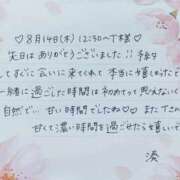 ♡8月14日(木) 12:30〜T様♡
先日はありがとうございました!!予約
してすぐに会いに来てくれて本当に嬉しかったです
一緒に過ごした時間は初めてって思えない
自然で…甘い時間でしたね♡♡またTこの
甘くて濃い時間を過ごせたら嬉しいで
湊